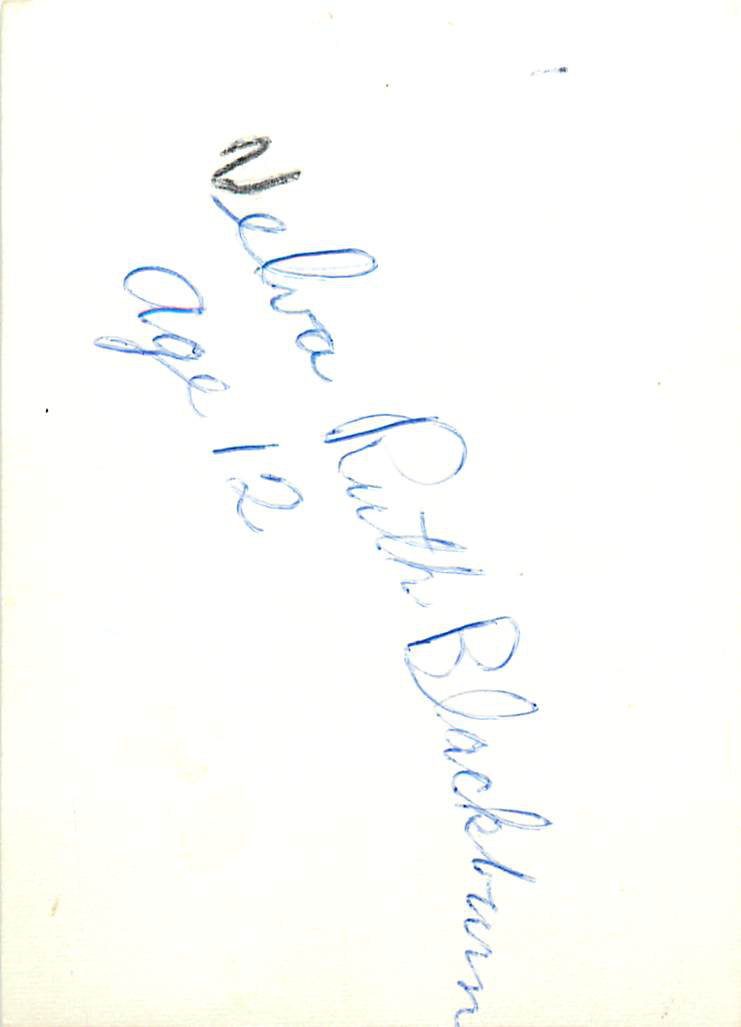 Velva Ruth Blackburn
age 12